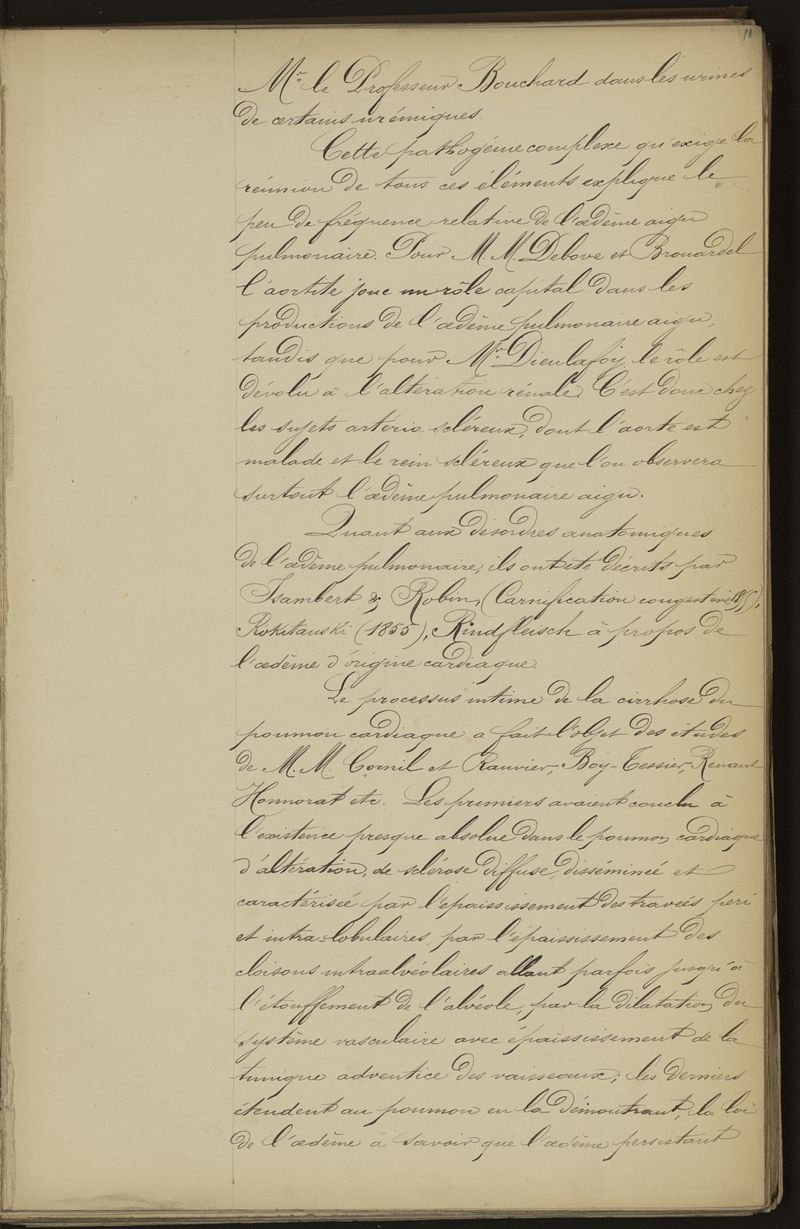 11
Mr. le Professeur Bouchard dans les urines
de certains urémiques.
Cette pathogénie complexe qu'exige la
réunion de tous ces éléments explique le
peu de fréquence relative de l'œdème aigu
pulmonaire. Pour M. M. Debove et Brouardel
l'aortite joue un rôle capital dans les
productions de l'œdème pulmonaire aigu,
tandis que pour Mr. Dieulafoy, le rôle est
dévolu à l'altération rénale. C'est donc chez
les sujets artério scléreux, dont l'aorte est
malade et le rein scléreux que l'on observera
surtout l'œdème pulmonaire aigu.
Quant aux désordres anatomiques
de l'œdème pulmonaire, ils ont été décrits par
Isambert & Robin, (Carnification congestive 1855),
Rokitanski (1855), Rindfleisch à propos de
l'œdème d'origine cardiaque.
Le processus intime de la cirrhose du
poumon cardiaque a fait l'objet des études
de M. M. Cornil et Ranvier, Boy-Tessier, Renaut
Honnorat etc. Les premiers avaient conclu à
l'existence presque absolue dans le poumon cardiaque
d'altération, de sclérose diffuse, disséminée et
caractérisée par l'epaississement des traveés peri
et intra-lobulaires, par l'épaississement des
cloisons intraalvéolaires allant parfois jusqu'à
l'étouffement de l'alvéole, par la dilatation du
système vasculaire avec épaississement de la
tunique adventice des vaisseaux; les derniers
étendent au poumon en la démontrant, la loi
de l'œdème à savoir que l'œdème persistant